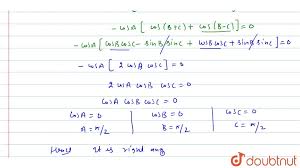 - cosA [ cos(B+C) + cos(B-C) ] = 0
- cosA [ cosB cosC - sinB sinC + cosB cosC + sinB sinC ] = 0
- cosA [ 2 cosA cosC ] = 0
2 cosA cosB cosC = 0
cosA cosB cosC = 0
cosA = 0 cosB = 0 cosC = 0
A = π/2 B = π/2 C = π/2
it is right ang
doubtnut